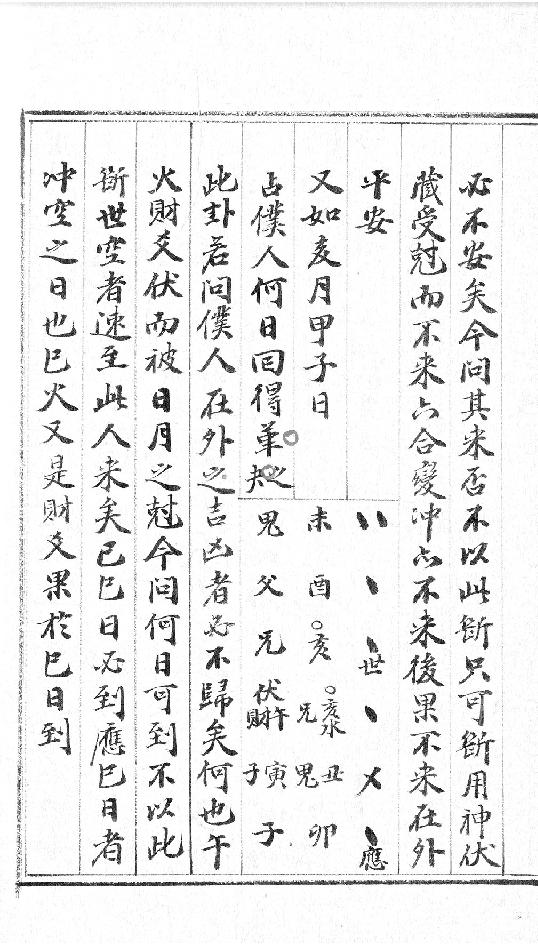 必不安矣今问其来否不以此断只可断用神伏
藏受尅而不来六合變冲亦不来後果不来在外
平安
又如亥月甲子日
占僕人何日回得革之夬
未 酉 亥 亥水 丑 卯
兄 鬼
世 應
鬼 父 兄 伏午財 寅子 子
此卦若问僕人在外之吉凶者必不歸矣何也午
火財爻伏而被日月之尅今问何日可到不以此
断世空者速至此人来矣己巳日必到應巳日者
冲空之日也巳火又是財爻果於巳日到